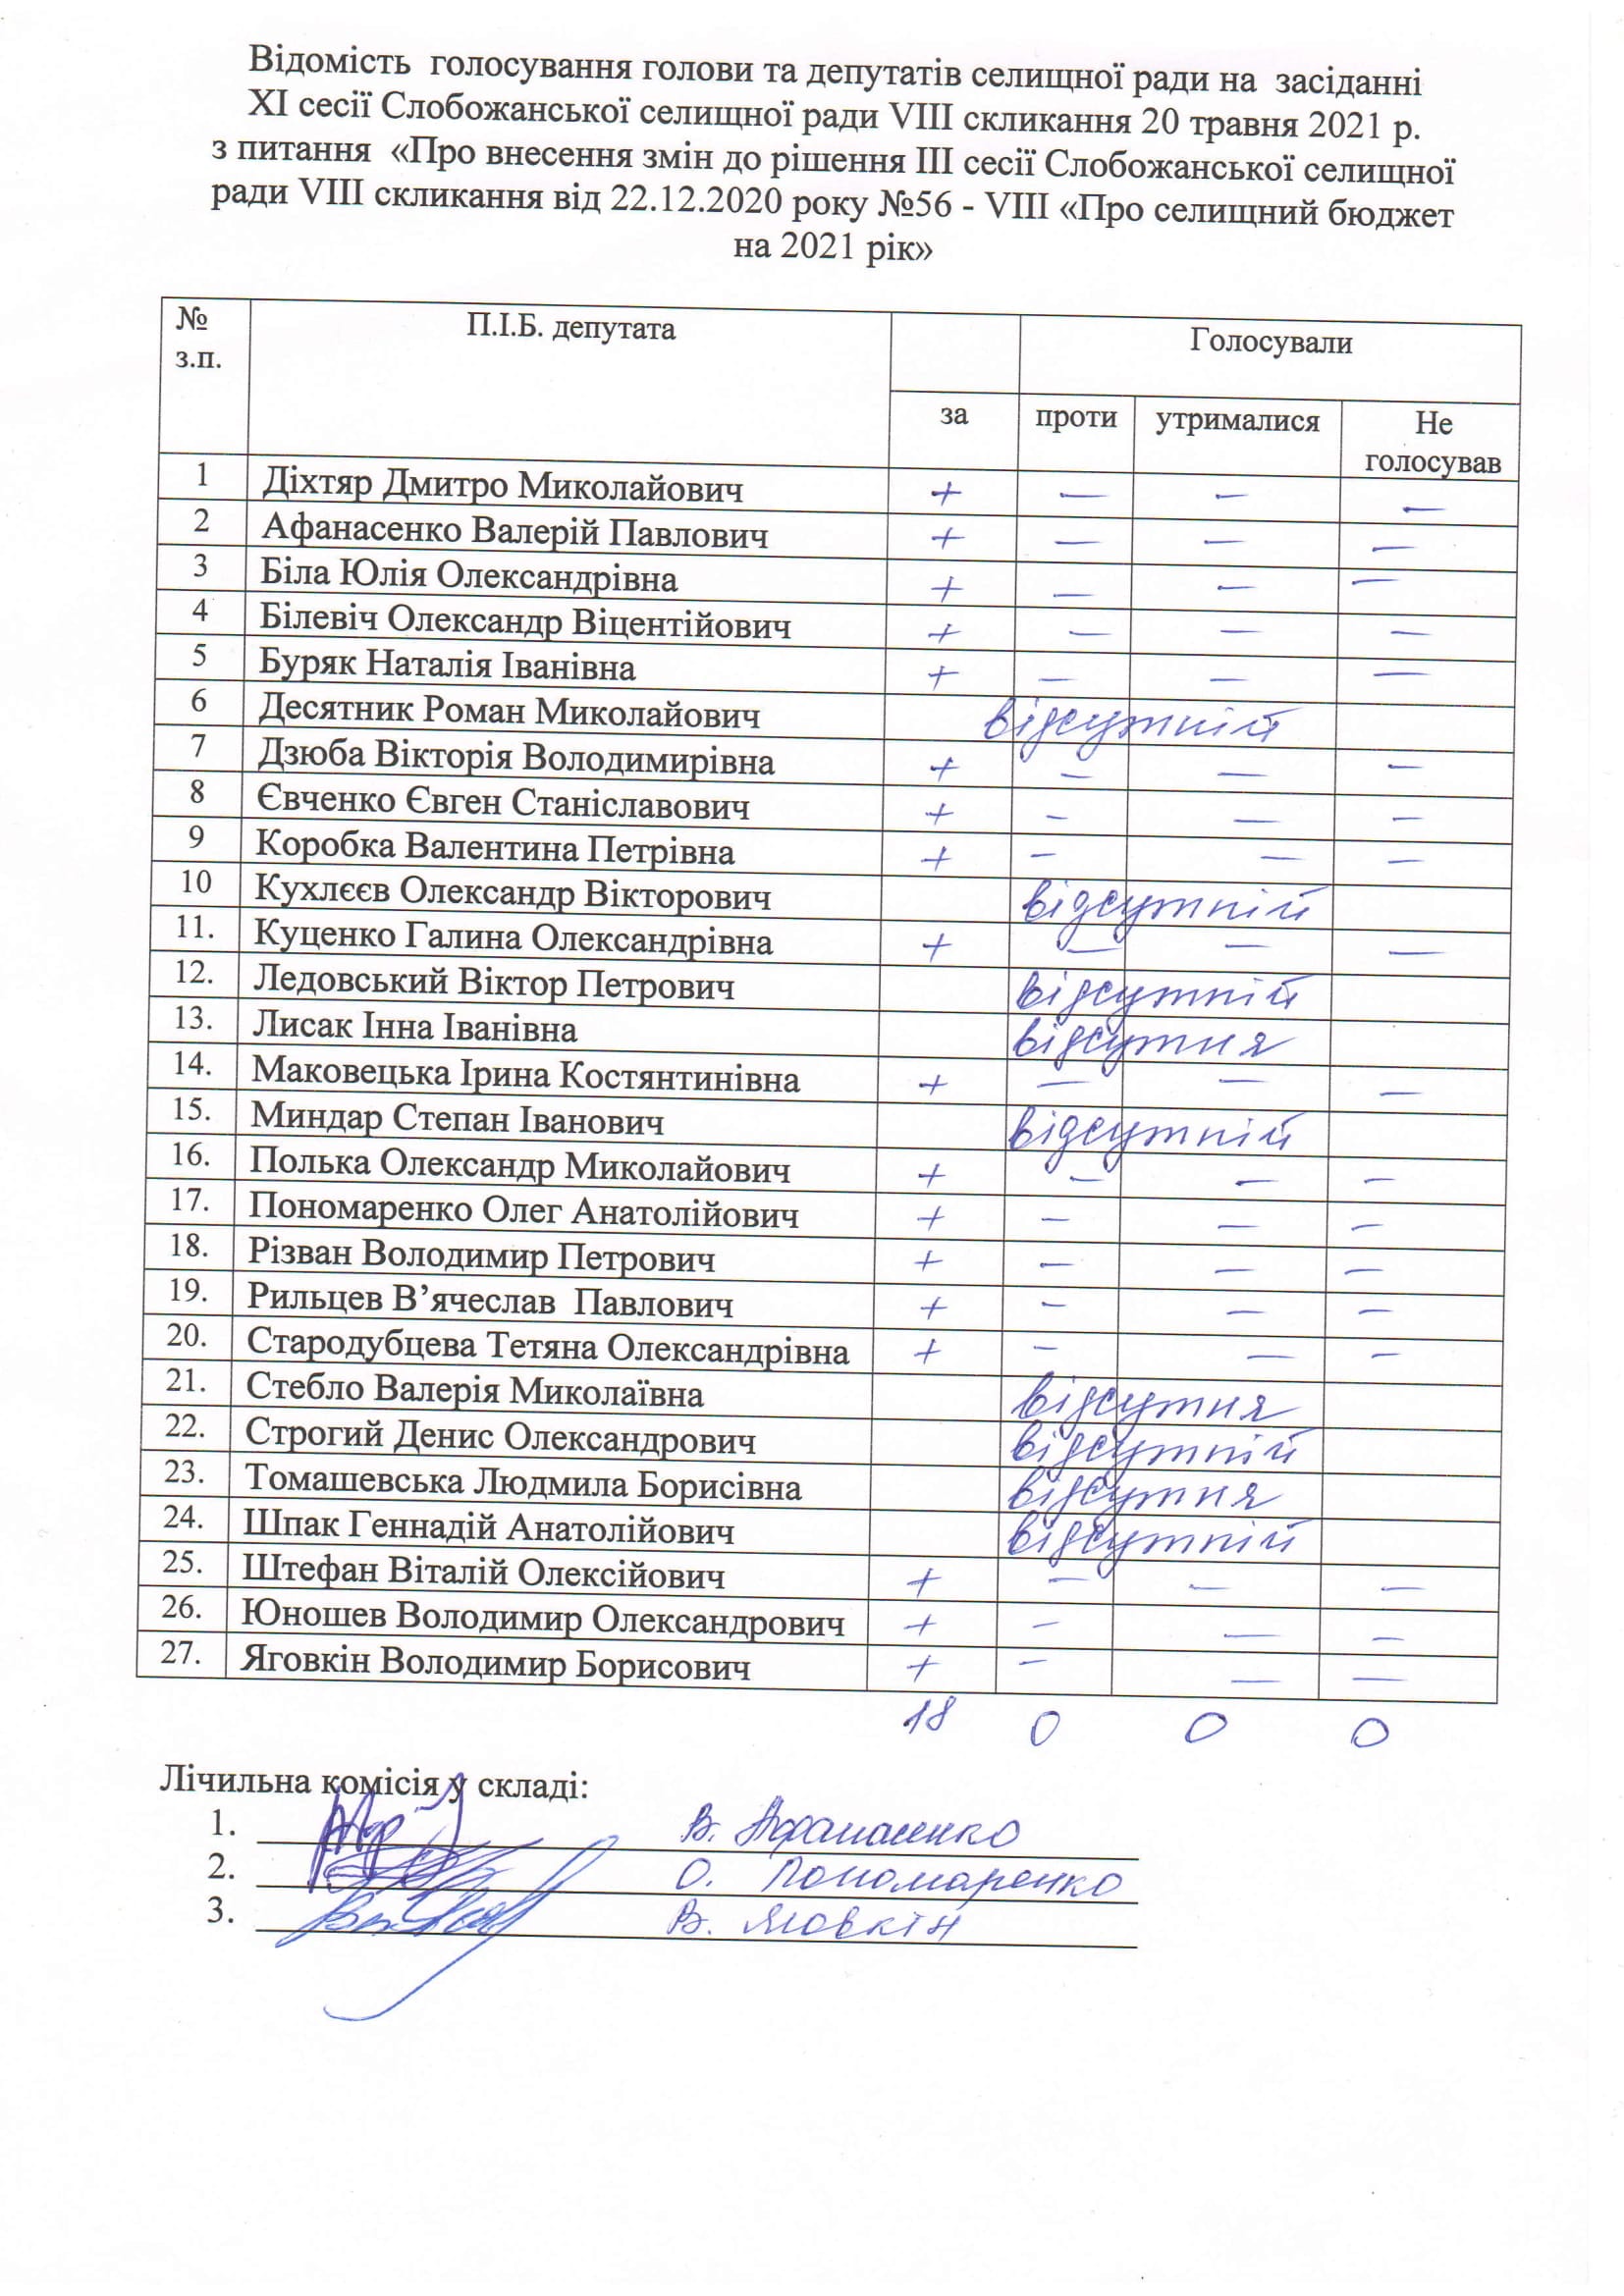 Відомість голосування голови та депутатів селищної ради на засіданні
XI сесії Слобожанської селищної ради VIII скликання 20 травня 2021 р.
з питання «Про внесення змін до рішення III сесії Слобожанської селищної
ради VIII скликання від 22.12.2020 року №56 - VIII «Про селищний бюджет
на 2021 рік»
№ з.п. П.І.Б. депутата Голосували
за проти утрималися Не голосував
1 Діхтяр Дмитро Миколайович + — — —
2 Афанасенко Валерій Павлович + — — —
3 Біла Юлія Олександрівна + — — —
4 Білевіч Олександр Віцентійович + — — —
5 Буряк Наталія Іванівна + — — —
6 Десятник Роман Миколайович відсутній
7 Дзюба Вікторія Володимирівна + — — —
8 Євченко Євген Станіславович + — — —
9 Коробка Валентина Петрівна + — — —
10 Кухлєєв Олександр Вікторович відсутній
11. Куценко Галина Олександрівна + — — —
12. Ледовський Віктор Петрович відсутній
13. Лисак Інна Іванівна відсутня
14. Маковецька Ірина Костянтинівна + — — —
15. Миндар Степан Іванович відсутній
16. Полька Олександр Миколайович + — — —
17. Пономаренко Олег Анатолійович + — — —
18. Різван Володимир Петрович + — — —
19. Рильцев В’ячеслав Павлович + — — —
20. Стародубцева Тетяна Олександрівна + — — —
21. Стебло Валерія Миколаївна відсутня
22. Строгий Денис Олександрович відсутній
23. Томашевська Людмила Борисівна відсутня
24. Шпак Геннадій Анатолійович відсутній
25. Штефан Віталій Олексійович + — — —
26. Юношев Володимир Олександрович + — — —
27. Яговкін Володимир Борисович + — — —
18 0 0 0
Лічильна комісія у складі:
1. В. Афанасенко
2. О. Пономаренко
3. В. Яговкін